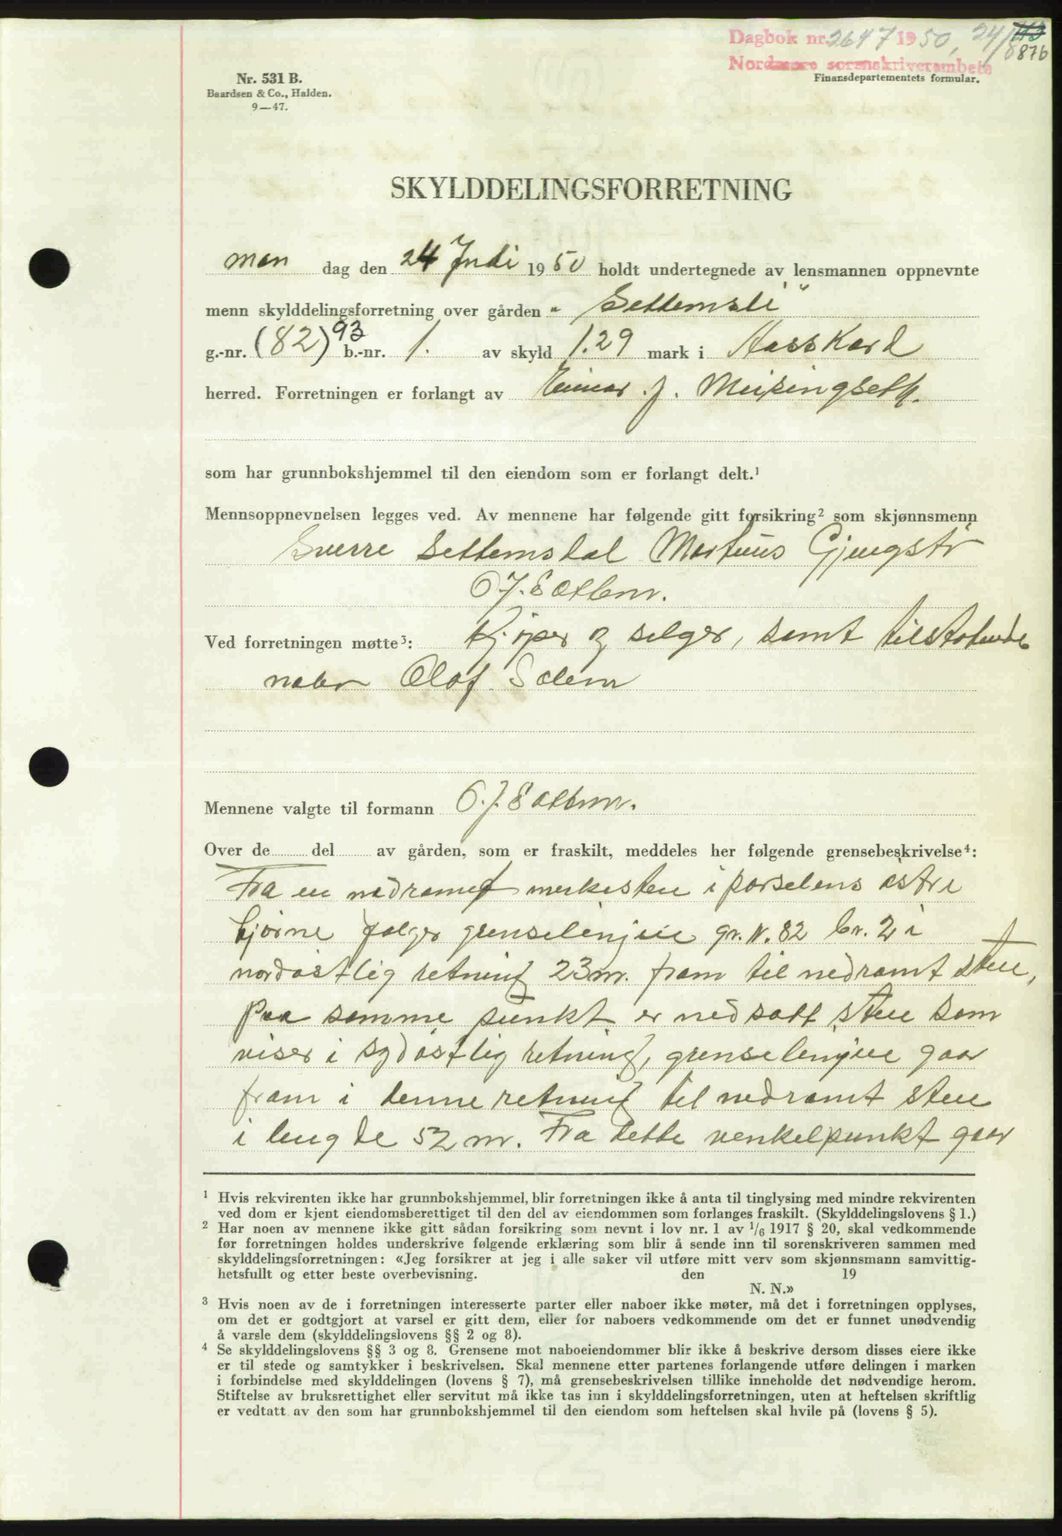 Dagbok nr. 2647 1950, 24/8
Nordmøre sorenskriverembete
876
Nr. 531 B.
Baardsen & Co., Halden.
9—47.
Finansdepartementets formular.
SKYLDDELINGSFORRETNING
man dag den 24 Juli 1950 holdt undertegnede av lensmannen oppnevnte
menn skylddelingsforretning over gården - "Settemsli"
g.-nr. (82) 93 b.-nr. 1. av skyld 1.29 mark i Aasskard
herred. Forretningen er forlangt av Einar J. Meisingseth.
som har grunnbokshjemmel til den eiendom som er forlangt delt.¹
Mennsoppnevnelsen legges ved. Av mennene har følgende gitt forsikring² som skjønnsmenn
Sverre Settemsdal Martinus Gjengstø
O. J. Sættem.
Ved forretningen møtte³: Kjøper og selger, samt tilstøtende
nabo Olaf Solem
Mennene valgte til formann O. J. Sættem.
Over de del av gården, som er fraskilt, meddeles her følgende grensebeskrivelse⁴:
Fra en nedramt merkesten i parselens østre
hjørne følger grenselinjen gr. N. 82 br. 2 i
nordøstlig retning 23 m. fram til nedramt sten,
Paa samme punkt er nedsatt sten som
viser i sydøstlig retning, grenselinjen gaar
fram i denne retning til nedramt sten
i lengde 52 m. Fra dette venkelpunkt gaar
¹ Hvis rekvirenten ikke har grunnbokshjemmel, blir forretningen ikke å anta til tinglysing med mindre rekvirenten
ved dom er kjent eiendomsberettiget til den del av eiendommen som forlanges fraskilt. (Skylddelingslovens § 1.)
² Har noen av mennene ikke gitt sådan forsikring som nevnt i lov nr. 1 av 1/6 1917 § 20, skal vedkommende
før forretningen holdes underskrive følgende erklæring som blir å sende inn til sorenskriveren sammen med
skylddelingsforretningen: «Jeg forsikrer at jeg i alle saker vil utføre mitt verv som skjønnsmann samvittig-
hetsfullt og etter beste overbevisning. den 19
N. N.»
³ Hvis noen av de i forretningen interesserte parter eller naboer ikke møter, må det i forretningen opplyses,
om det er godtgjort at varsel er gitt dem, eller for naboers vedkommende om det er funnet unødvendig
å varsle dem (skylddelingslovens §§ 2 og 8).
⁴ Se skylddelingslovens §§ 3 og 8. Grensene mot naboeiendommer blir ikke å beskrive dersom disses eiere ikke
er til stede og samtykker i beskrivelsen. Skal mennene etter partenes forlangende utføre delingen i marken
i forbindelse med skylddelingen (lovens § 7), må grensebeskrivelsen tillike inneholde det nødvendige herom.
Stiftelse av bruksrettighet eller servitut må ikke tas inn i skylddelingsforretningen, uten at heftelsen skriftlig
er vedtatt av den som har grunnbokshjemmel til den eiendom som heftelsen skal hvile på (lovens § 5).